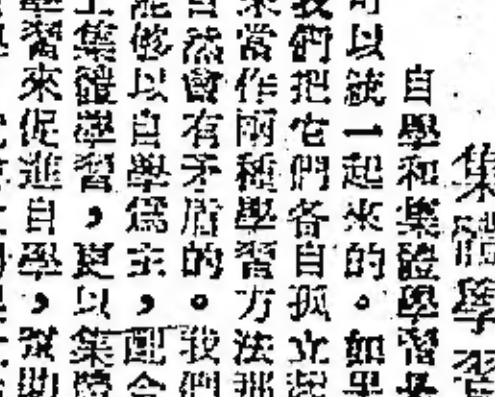 集體學習
自學和集體學習
可以統一起來的。如果
我們把它們各自孤立起
來當作兩種學習方法那
自然會有矛盾的。我們
能够以自學爲主，配合
集體學習，更以集體
學習來促進自學，幫助